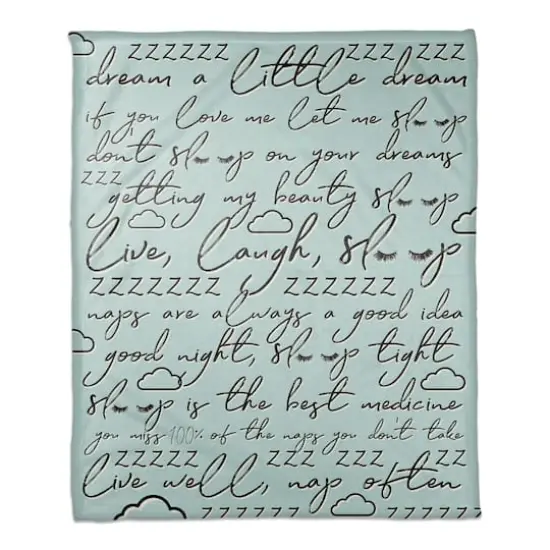 ZZZZZZ ZZZ ZZZ
dream a little dream
if you love me let me sleep
don't sleep on your dreams
ZZZ
getting my beauty sleep
live, laugh, sleep
ZZZZZZZ ZZZZZZ
naps are always a good idea
good night, sleep tight
sleep is the best medicine
you miss 100% of the naps you don't take
ZZZZZ ZZZ ZZZ ZZ
live well, nap often
ZZZZZZZ ZZZZZ